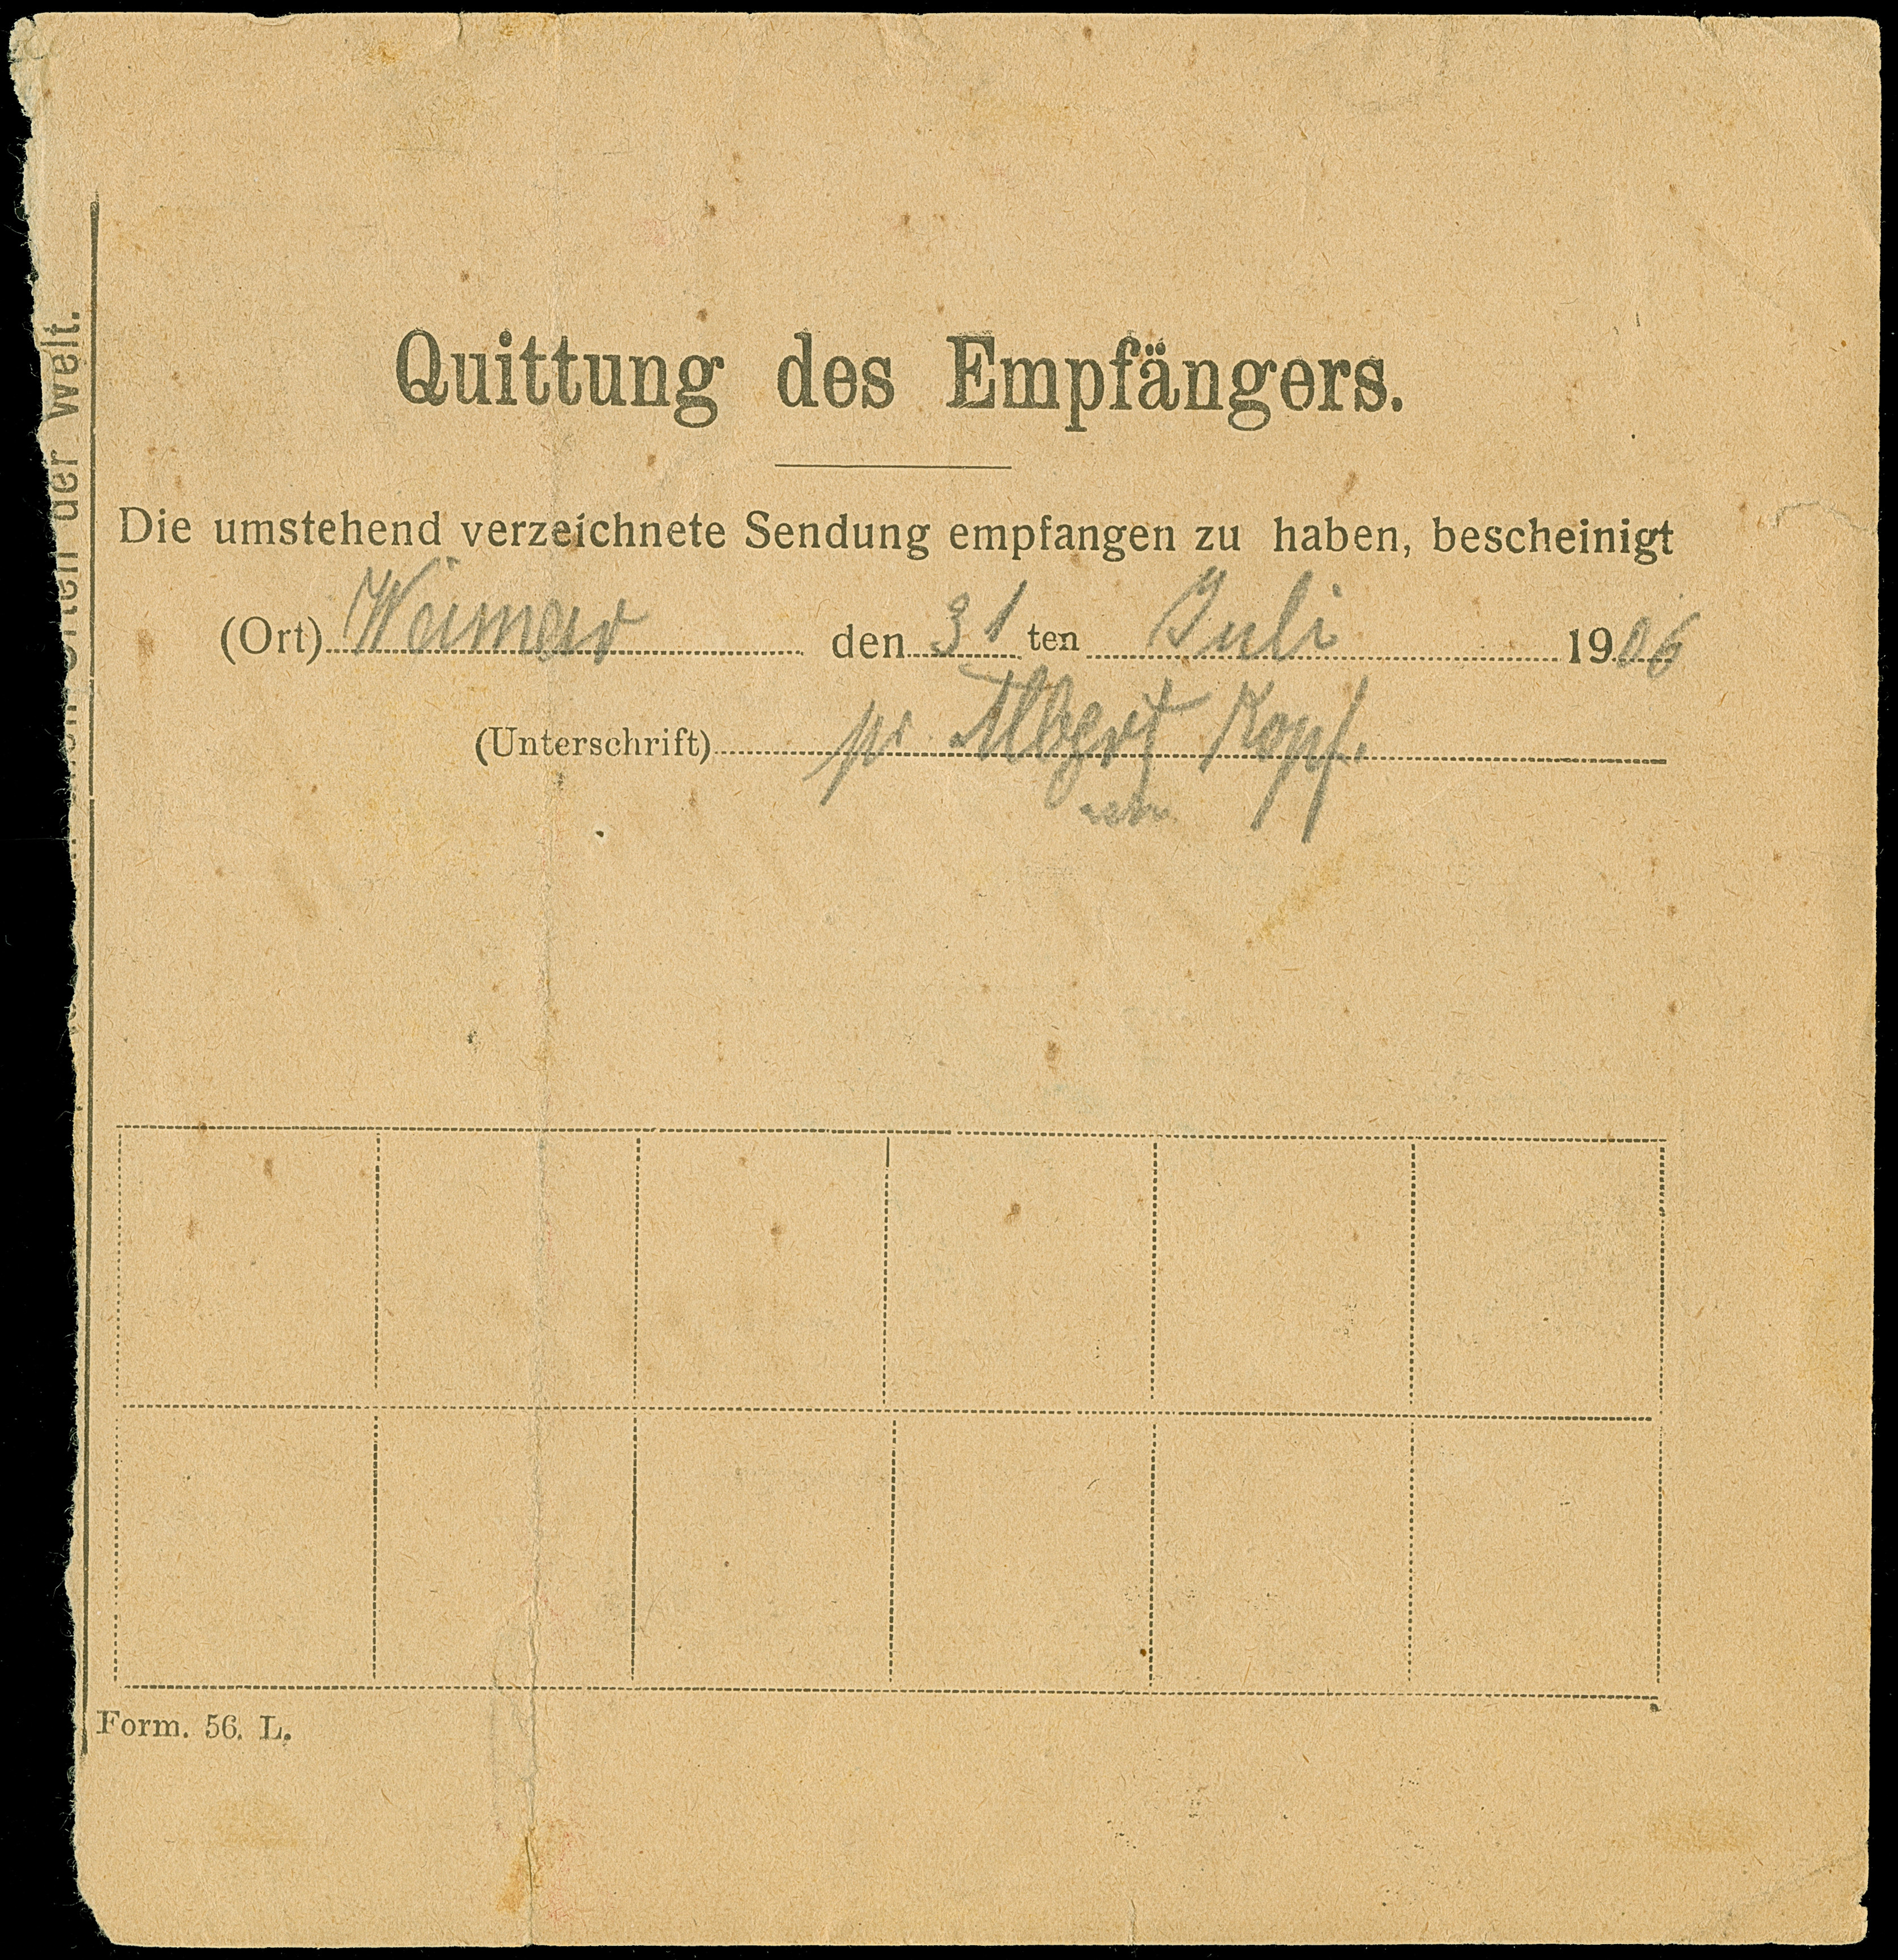 Quittung des Empfängers.
Die umstehend verzeichnete Sendung empfangen zu haben, bescheinigt
(Ort) Weimar den 31 ten Juli 1906
(Unterschrift) pr Albert Kopf.
Form. 56. L.
der Welt.